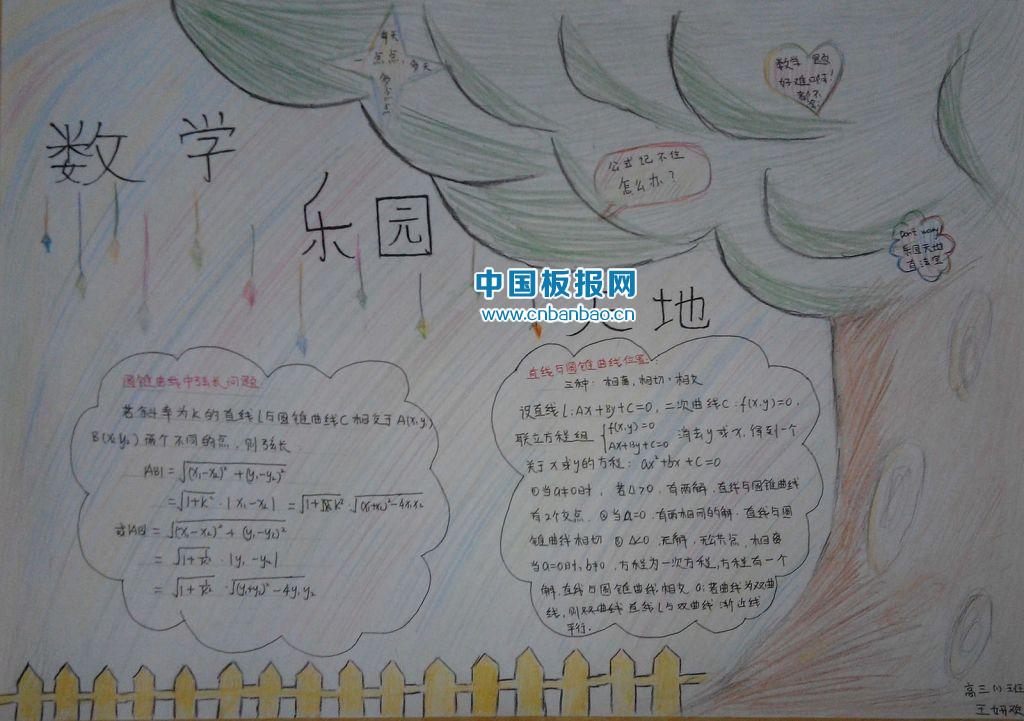 数学
乐园
天地
一天
点点,每天
多一点
数学题
好难啊!
都不会
公式记不住
怎么办?
Don't worry
乐园天地
有法宝
中国板报网
www.cnbanbao.cn
圆锥曲线中弦长问题
若斜率为K的直线l与圆锥曲线C相交于A(x₁y₁)
B(x₂y₂)两个不同的点,则弦长
|AB|=√(x₁-x₂)²+(y₁-y₂)²
=√1+k²·|x₁-x₂| =√1+k²·√(x₁+x₂)²-4x₁x₂
或|AB|=√(x₁-x₂)²+(y₁-y₂)²
=√1+1/k²·|y₁-y₂|
=√1+1/k²·√(y₁+y₂)²-4y₁y₂
直线与圆锥曲线位置:
三种:相离,相切,相交
设直线l:Ax+By+C=0,二次曲线C:f(x,y)=0,
联立方程组{f(x,y)=0 Ax+By+C=0 消去y或x,得到一个
关于x或y的方程:ax²+bx+c=0
①当a≠0时,若Δ>0,有两解,直线与圆锥曲线
有2个交点.②当Δ=0,有两相同的解.直线与圆
锥曲线相切 ③Δ<0,无解,无公共点,相离
当a=0时,b≠0,方程为一次方程,方程有一个
解.直线与圆锥曲线相交 a:若曲线为双曲
线,则双曲线直线l与双曲线渐近线
平行.
高三(1)班